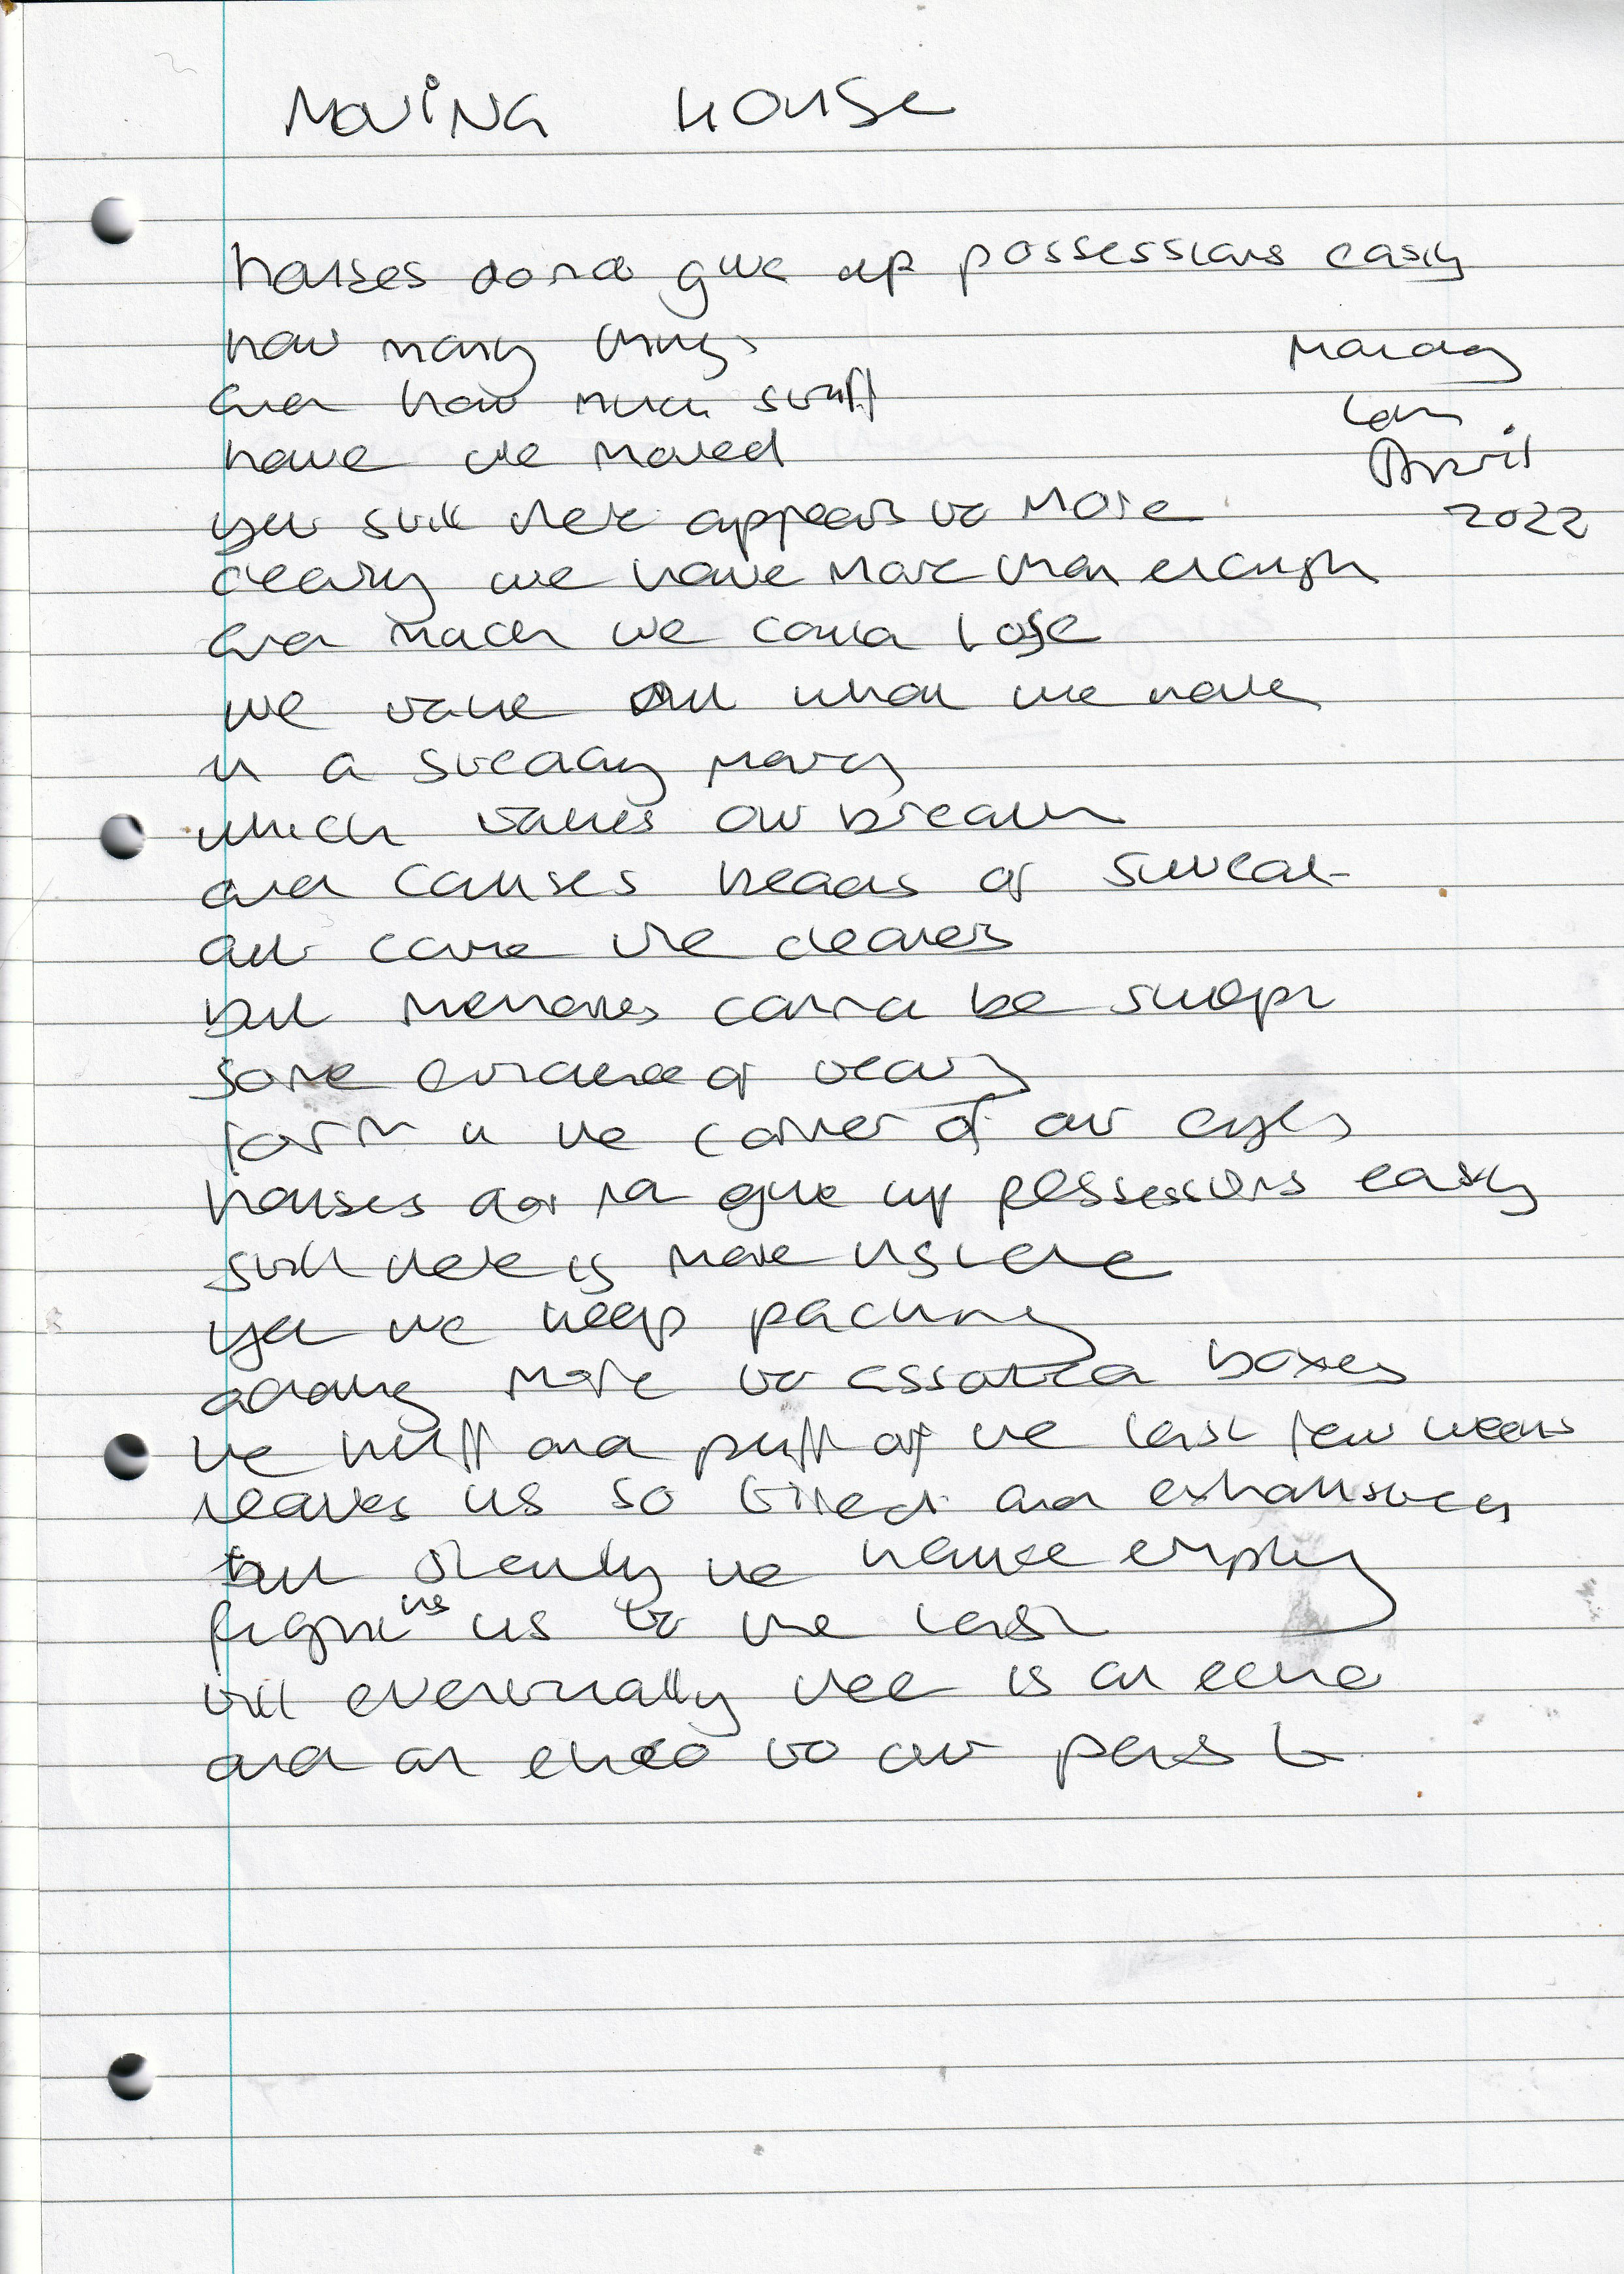 MOVING HOUSE
houses do not give up possessions easily
how many things
Monday
and how much stuff
4th
have we moved
April
yet still there appears to more
2022
clearly we have more than enough
and much we could lose
we take all what we have
in a steady
which takes our breath
and causes beads of sweat
and come the cleaners
but memories cannot be swept
some evidence of
form in the corner of our eyes
houses do not give up possessions easily
still there is more
yet we keep packing
adding more to assorted boxes
the huff and puff of the last few weeks
leaves us so tired and exhausted
but slowly the house empty
fighting us to the last
till eventually there is an echo
and an echo to our past